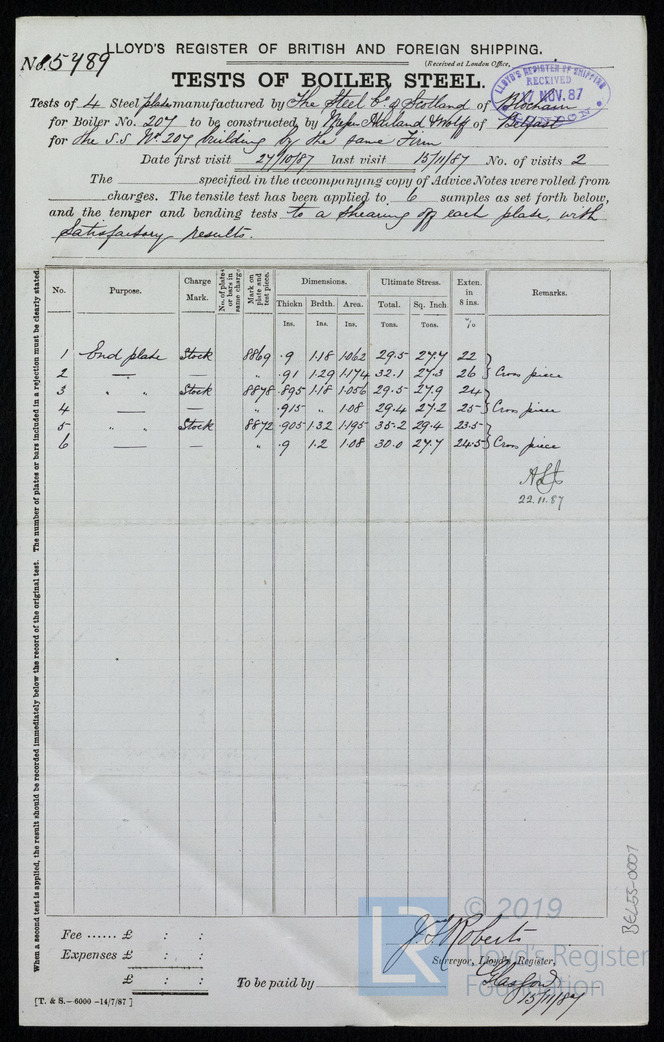 LLOYD'S REGISTER OF BRITISH AND FOREIGN SHIPPING.
No. 5489
(Received at London Office,
LLOYD'S REGISTER OF SHIPPING RECEIVED NOV. 87
TESTS OF BOILER STEEL.
Tests of 4 Steel plates manufactured by The Steel Co. of Scotland of Blochairn
for Boiler No. 207 to be constructed by Messrs Harland & Wolff of Belfast
for the S.S. No. 207 building by the same Firm
Date first visit 27/10/87 last visit 15/11/87 No. of visits 2
The specified in the accompanying copy of Advice Notes were rolled from
charges. The tensile test has been applied to 6 samples as set forth below,
and the temper and bending tests to a shearing off each plate, with
satisfactory results.
When a second test is applied, the result should be recorded immediately below the record of the original test. The number of plates or bars included in a rejection must be clearly stated.
No. Purpose. Charge Mark. No. of plates or bars in same charge. Mark on plate and test piece. Dimensions. Ultimate Stress. Exten. in 8 ins. Remarks.
Thickn Brdth. Area. Total. Sq. Inch
Ins. Ins. Ins. Tons. Tons. %
1 End plate Stock 8869 .9 1.18 1.062 29.5 27.7 22
2 — — " .91 1.29 1.174 32.1 27.3 26 Cross piece
3 " " Stock 8878 .895 1.18 1.056 29.5 27.9 24
4 — — " .915 " 1.08 29.4 27.2 25 Cross piece
5 " " Stock 8872 .905 1.32 1.195 35.2 29.4 23.5
6 — — " .9 1.2 1.08 30.0 27.7 24.5 Cross piece
22.11.87
Fee ...... £ : :
Expenses £ : :
£ : :
To be paid by
J. Roberts
Surveyor, Lloyd's Register,
Glasgow
15/11/87
[T. & S.—6000 —14/7/87]
BEL55-0007
LR
© 2019
Lloyd's Register
Foundation